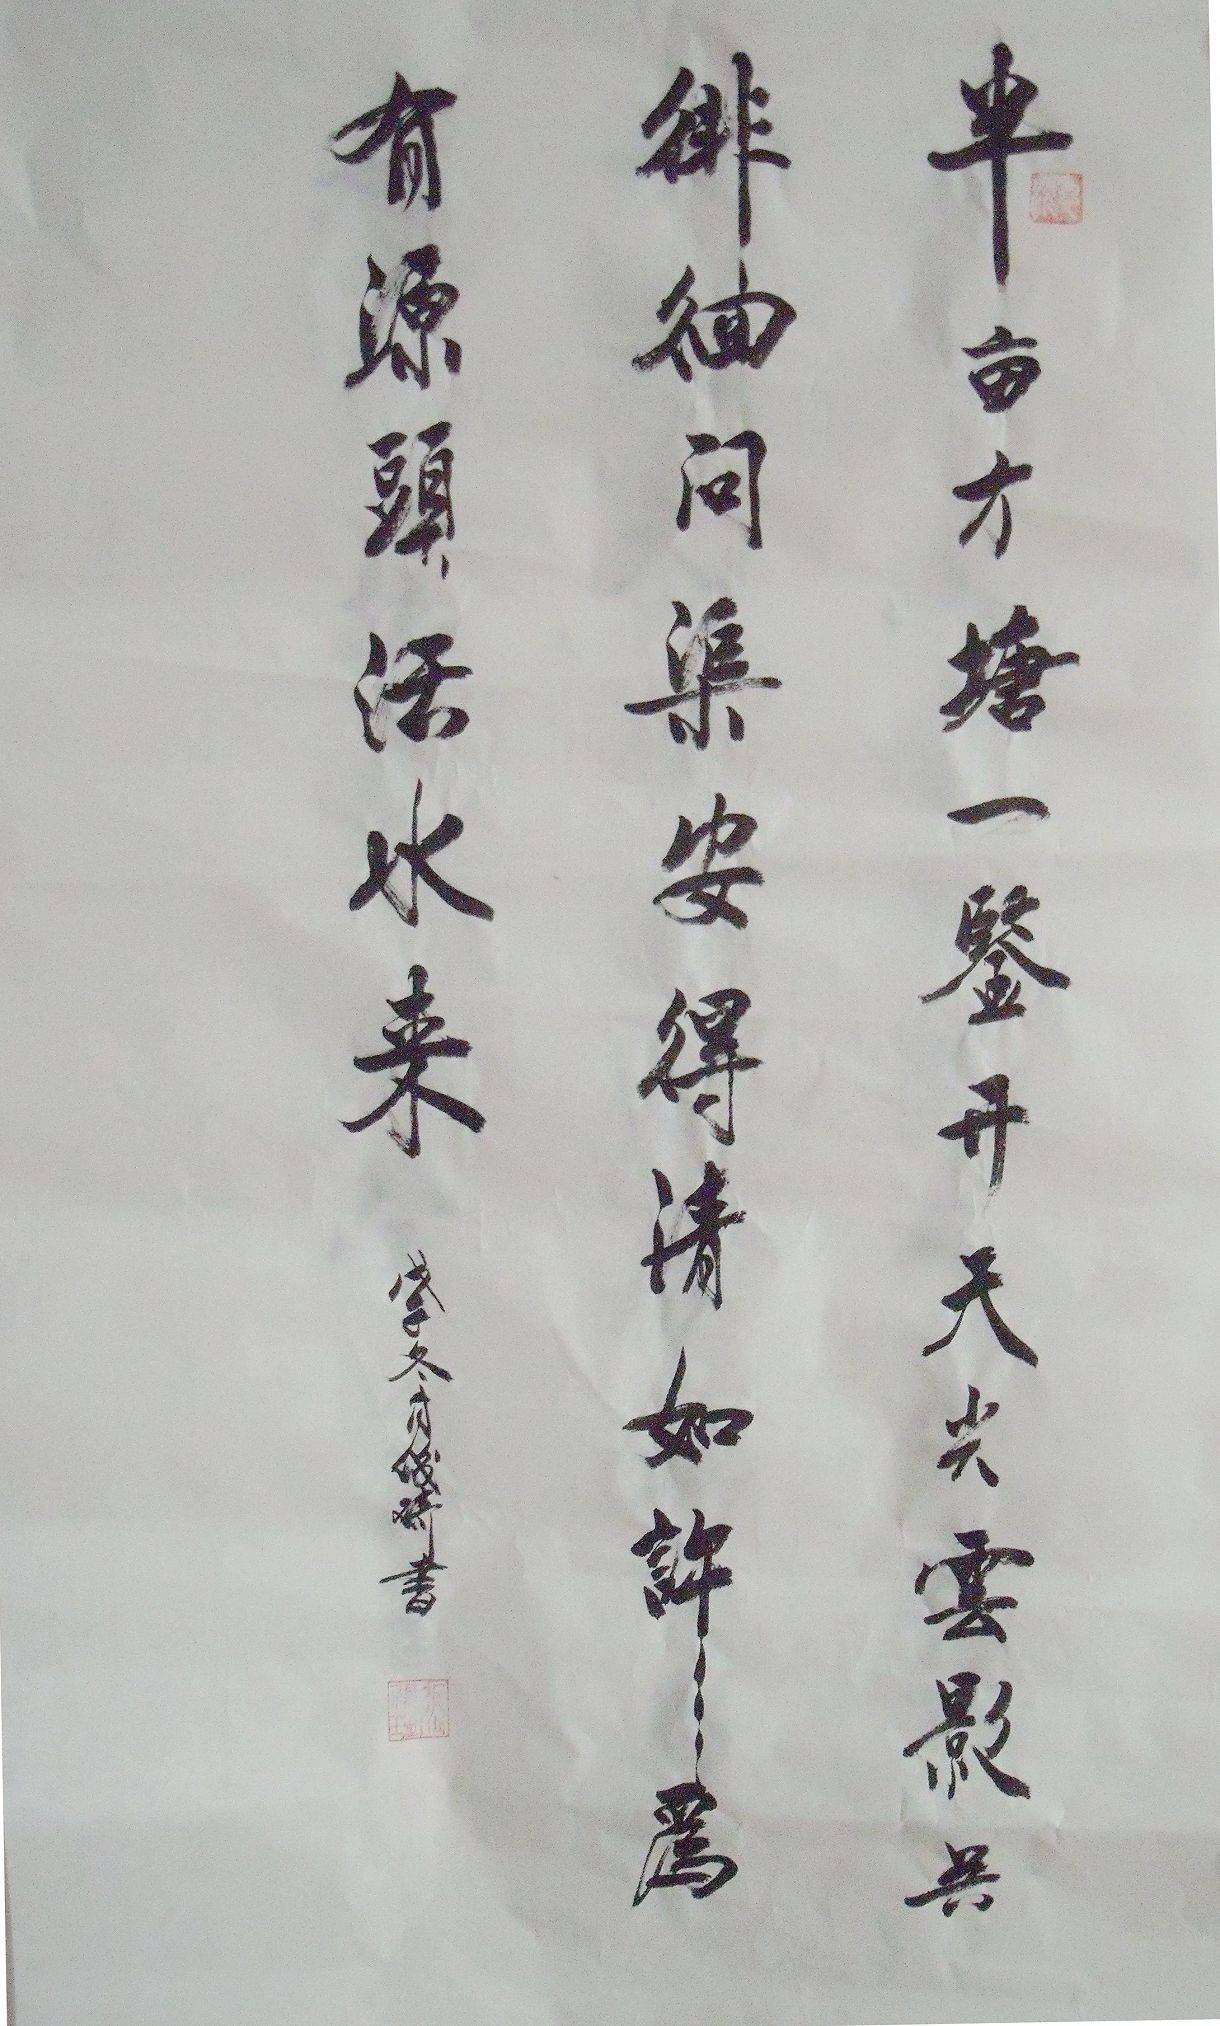 半亩方塘一鑒开天光雲影共
徘徊问渠安得清如許為
有源頭活水来
冬月 書